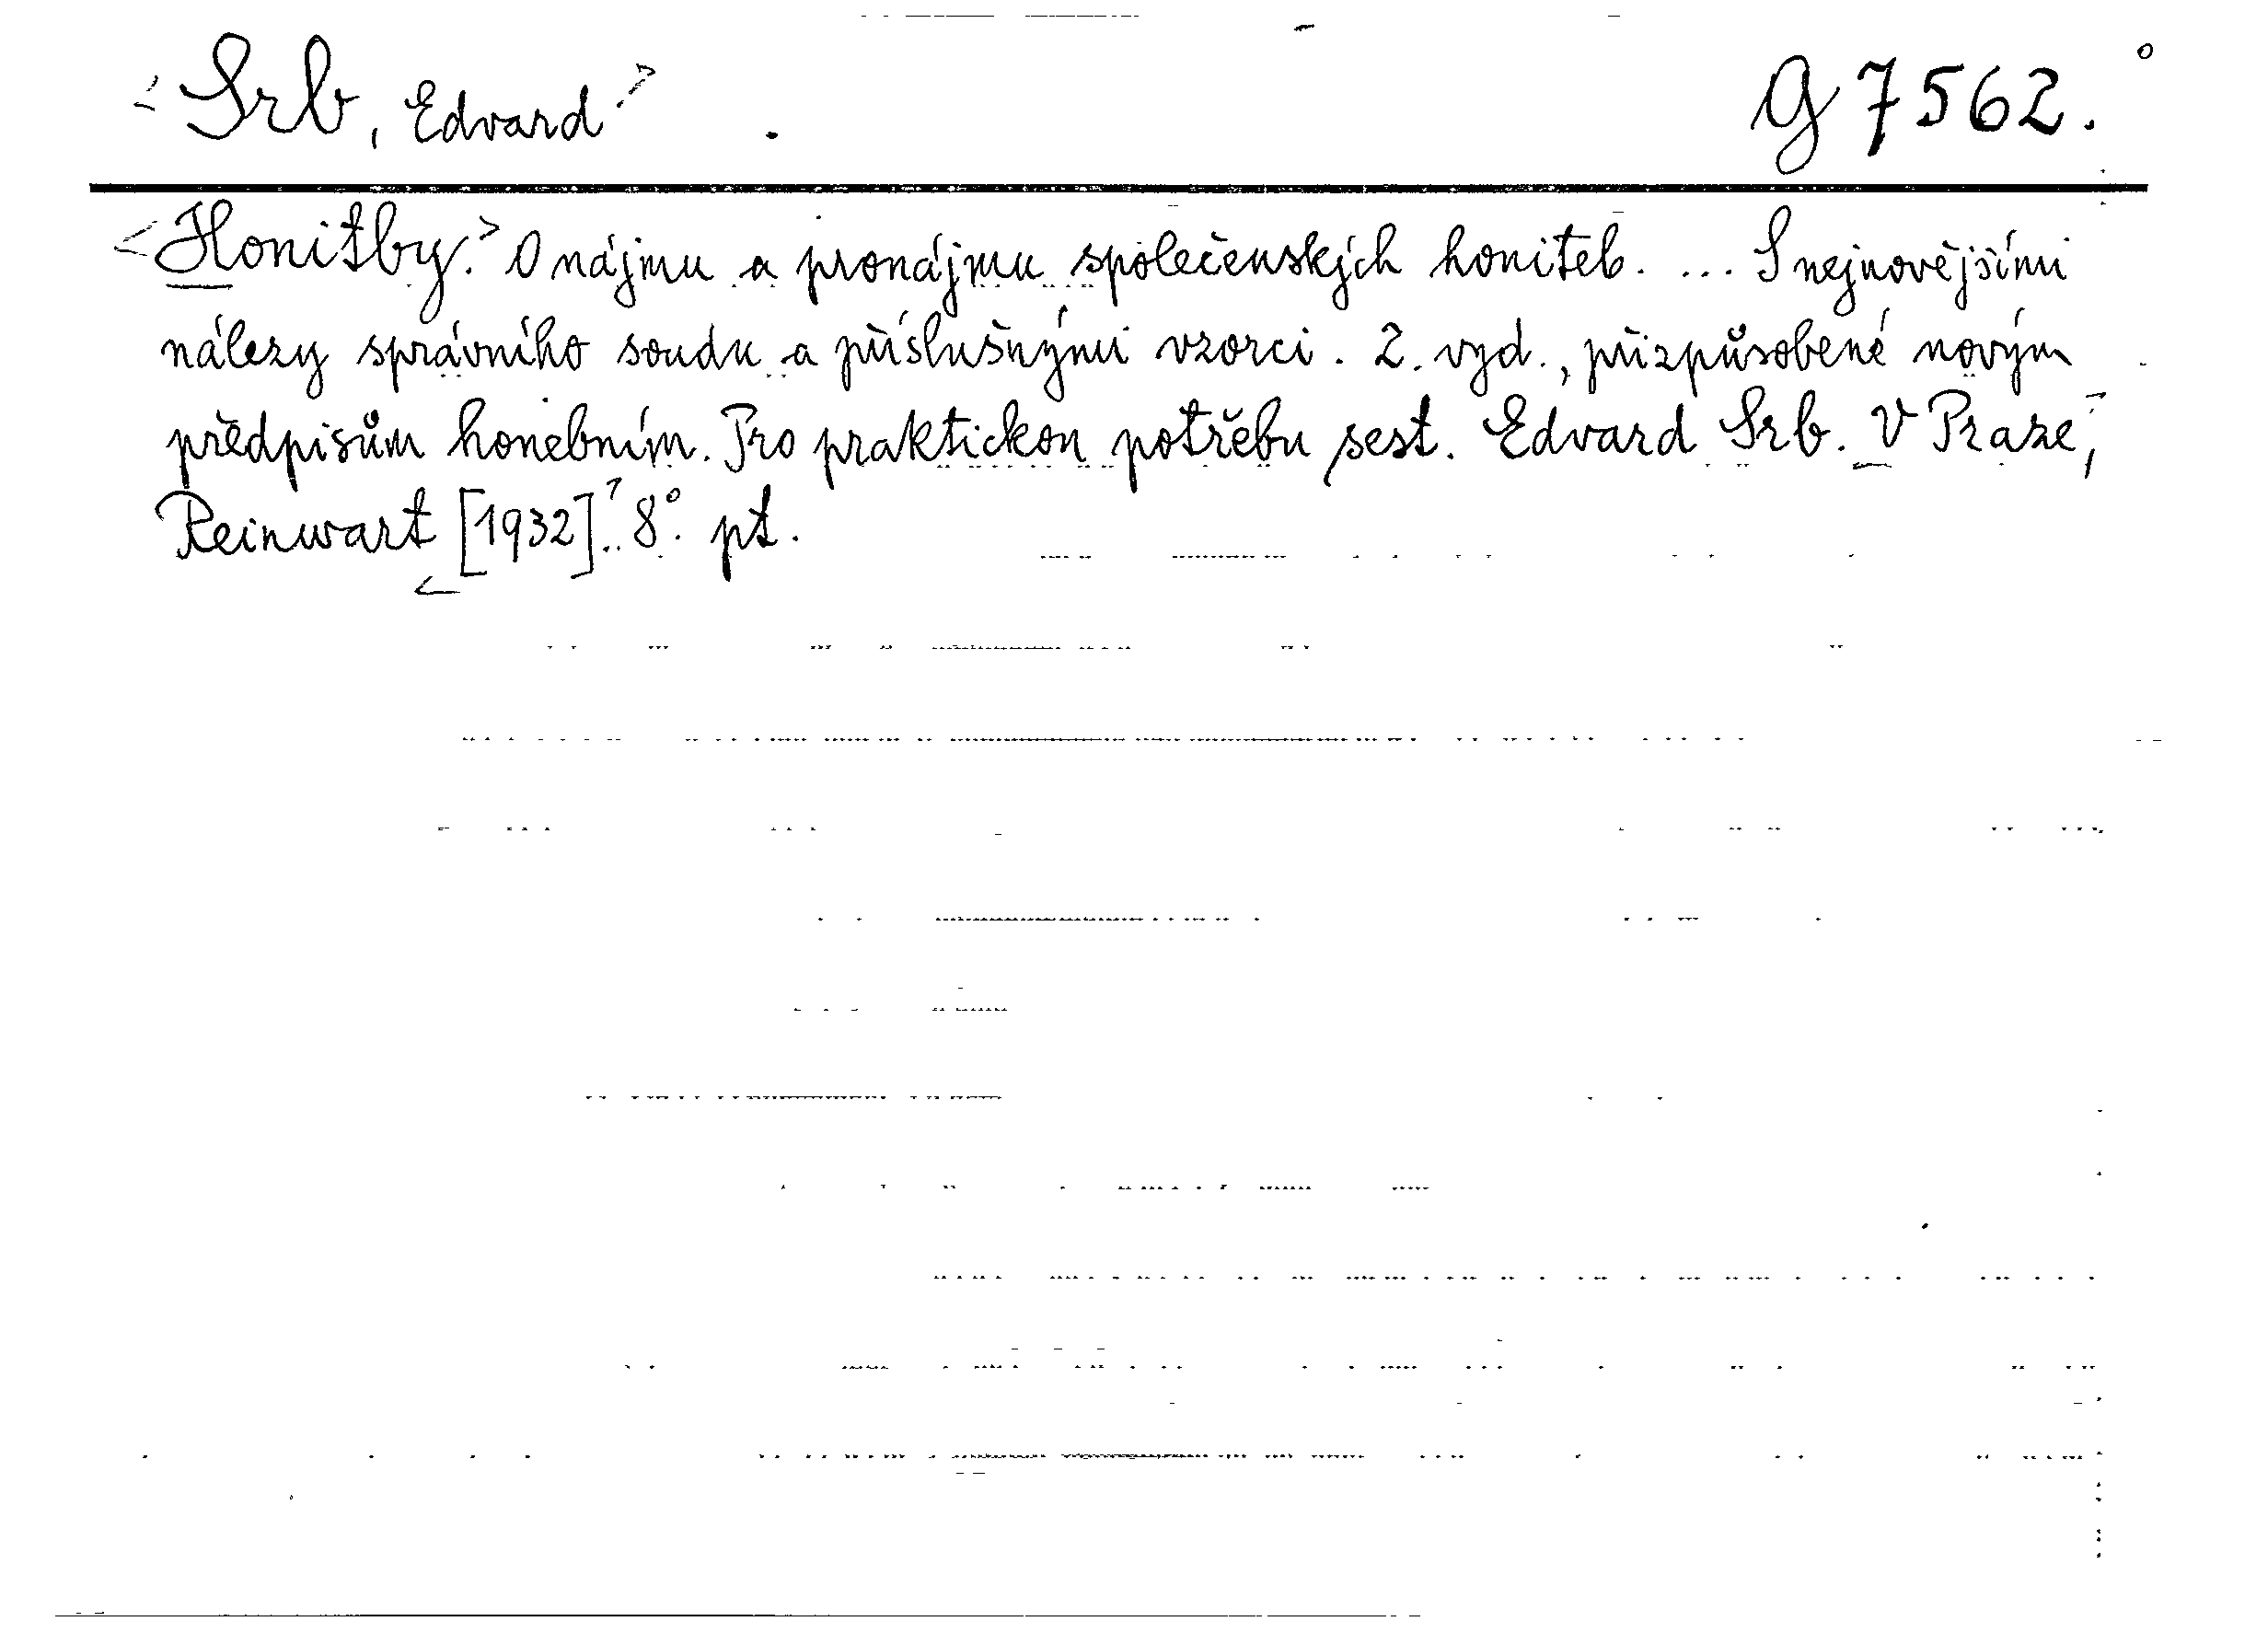 <Srb, Edvard> G 7562.
<Honitby.> O nájmu a pronájmu společenských honiteb. ... S nejnovějšími
nálezy správního soudu a příslušnými vzorci. 2. vyd., přizpůsobené novým
předpisům honebním. Pro praktickou potřebu sest. Edvard Srb. <V Praze,>
Reinwart <[1932].> 8°. pt.